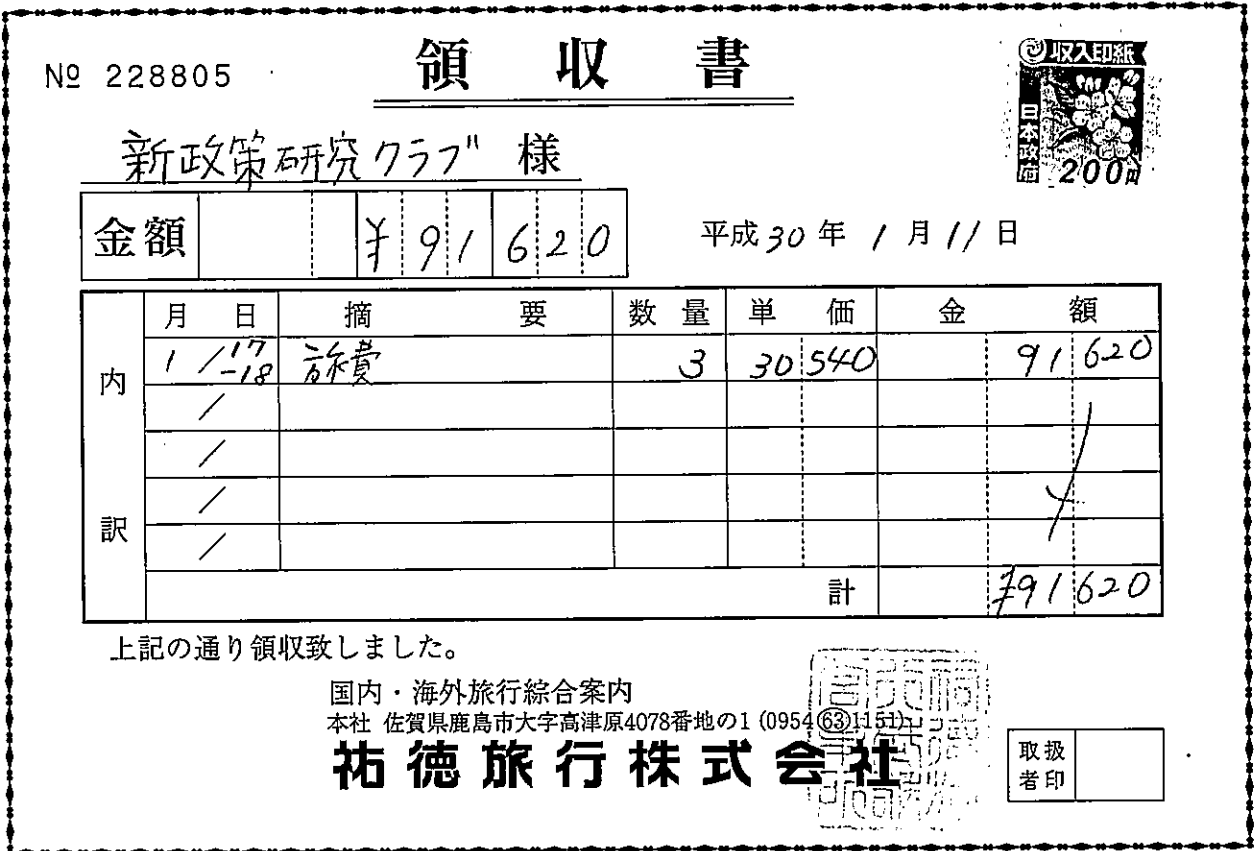 № 228805
領収書
収入印紙
日本政府
200円
新政策研究クラブ 様
金額 ¥91620
平成30年1月11日
内訳
月 日 摘要 数量 単価 金額
1/17-18 旅費 3 30540 91620
/
/
/
/
計 ¥91620
上記の通り領収致しました。
国内・海外旅行綜合案内
本社 佐賀県鹿島市大字高津原4078番地の1 (0954㊿1151)
祐徳旅行株式会社
取扱者印